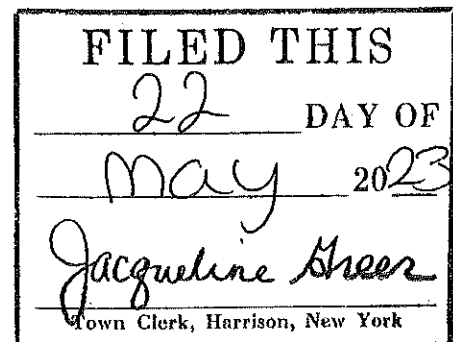 FILED THIS
22 DAY OF
May 2023
Jacqueline Greer
Town Clerk, Harrison, New York